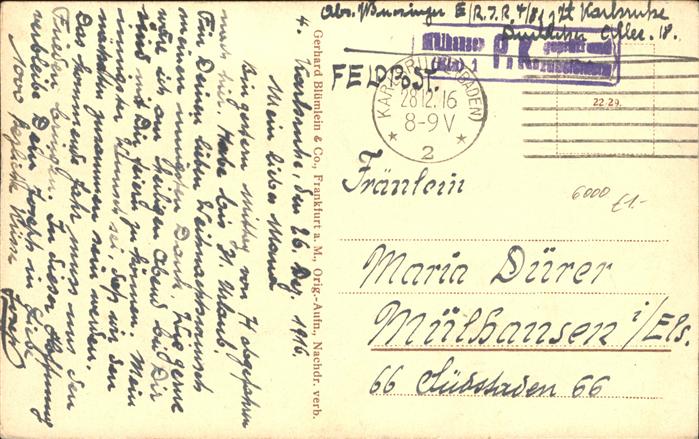 4. Karlsruhe, den 26. Dez. 1916.
Mein liebes
Bin gestern Mittag von H abgefahren
nach hier. Habe bis 31. Urlaub.
Für Deinen lieben Weihnachtswunsch
meinen innigsten Dank. Wie gerne
wäre ich am heiligen Abend bei Dir
und mit Dir feiern zu können. Mein
innigster Wunsch sei, daß wir den
nächsten zusammen sein werden.
Das kommende Jahr muss uns den
Frieden bringen. In dieser Hoffnung
verbleibe Dein Joseph in Liebe
1000 herzliche Küsse
Gerhard Blümlein & Co., Frankfurt a. M., Orig.-Aufn., Nachdr. verb.
Abs. E/R.I.R. 4/81 Karlsruhe
Allee. 18.
Mülhausen
(Els.) 1
P.K.
geprüft und
zu befördern
FELDPOST.
KARLSRUHE (BADEN)
28.12.16
8-9 V
* 2 *
22 29.
Fräulein
6000 £1.-
Maria Dürer
Mülhausen i/Els.
66 Südstaden 66